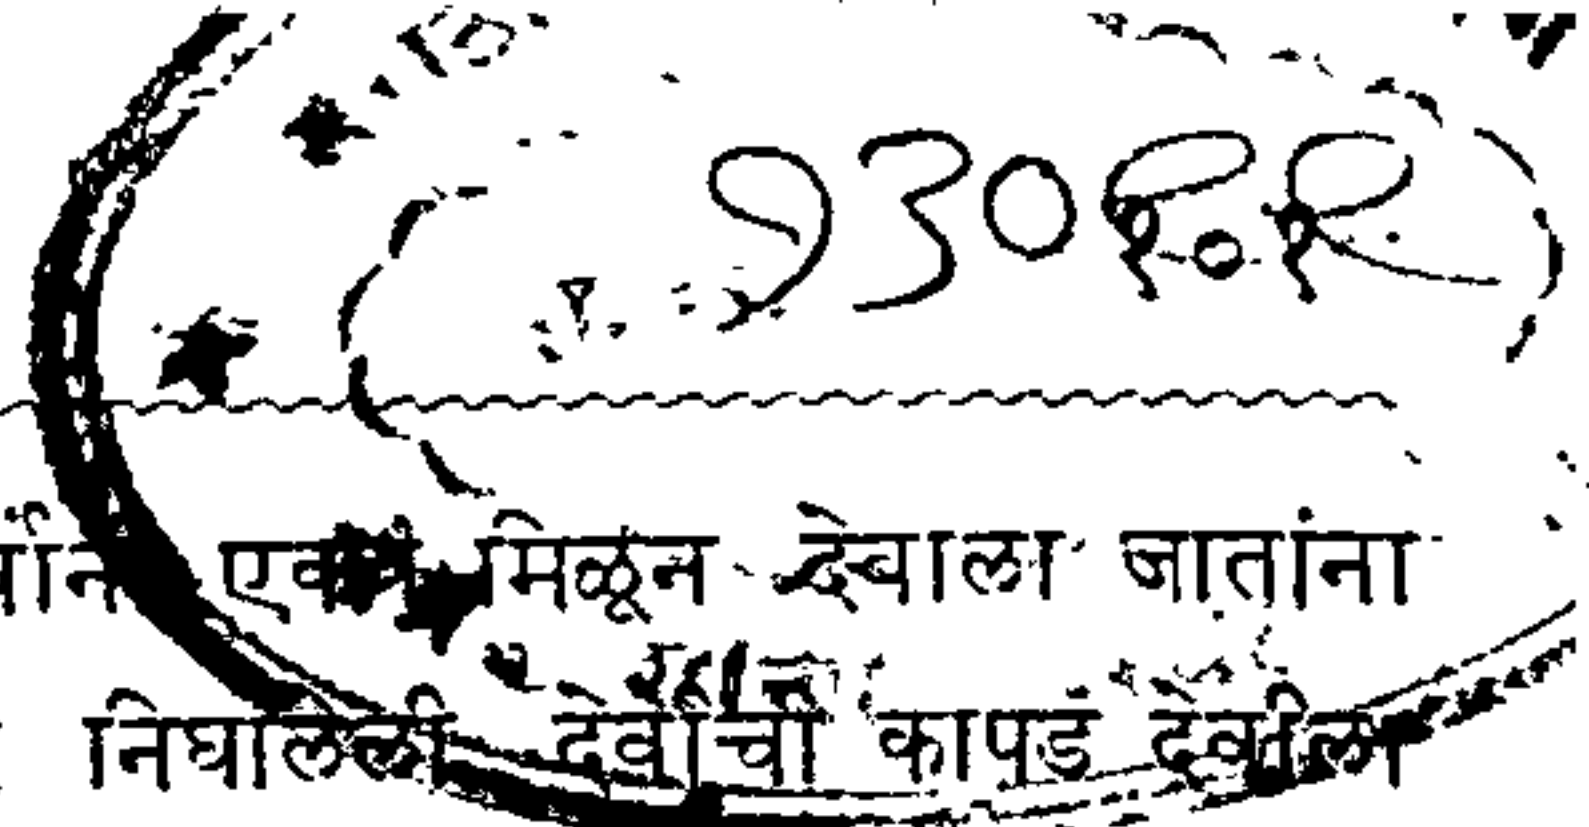 १३०११
१०१
एकत्र मिळून देवाला जातांना
निघालेली देवीची कापडं देवीला